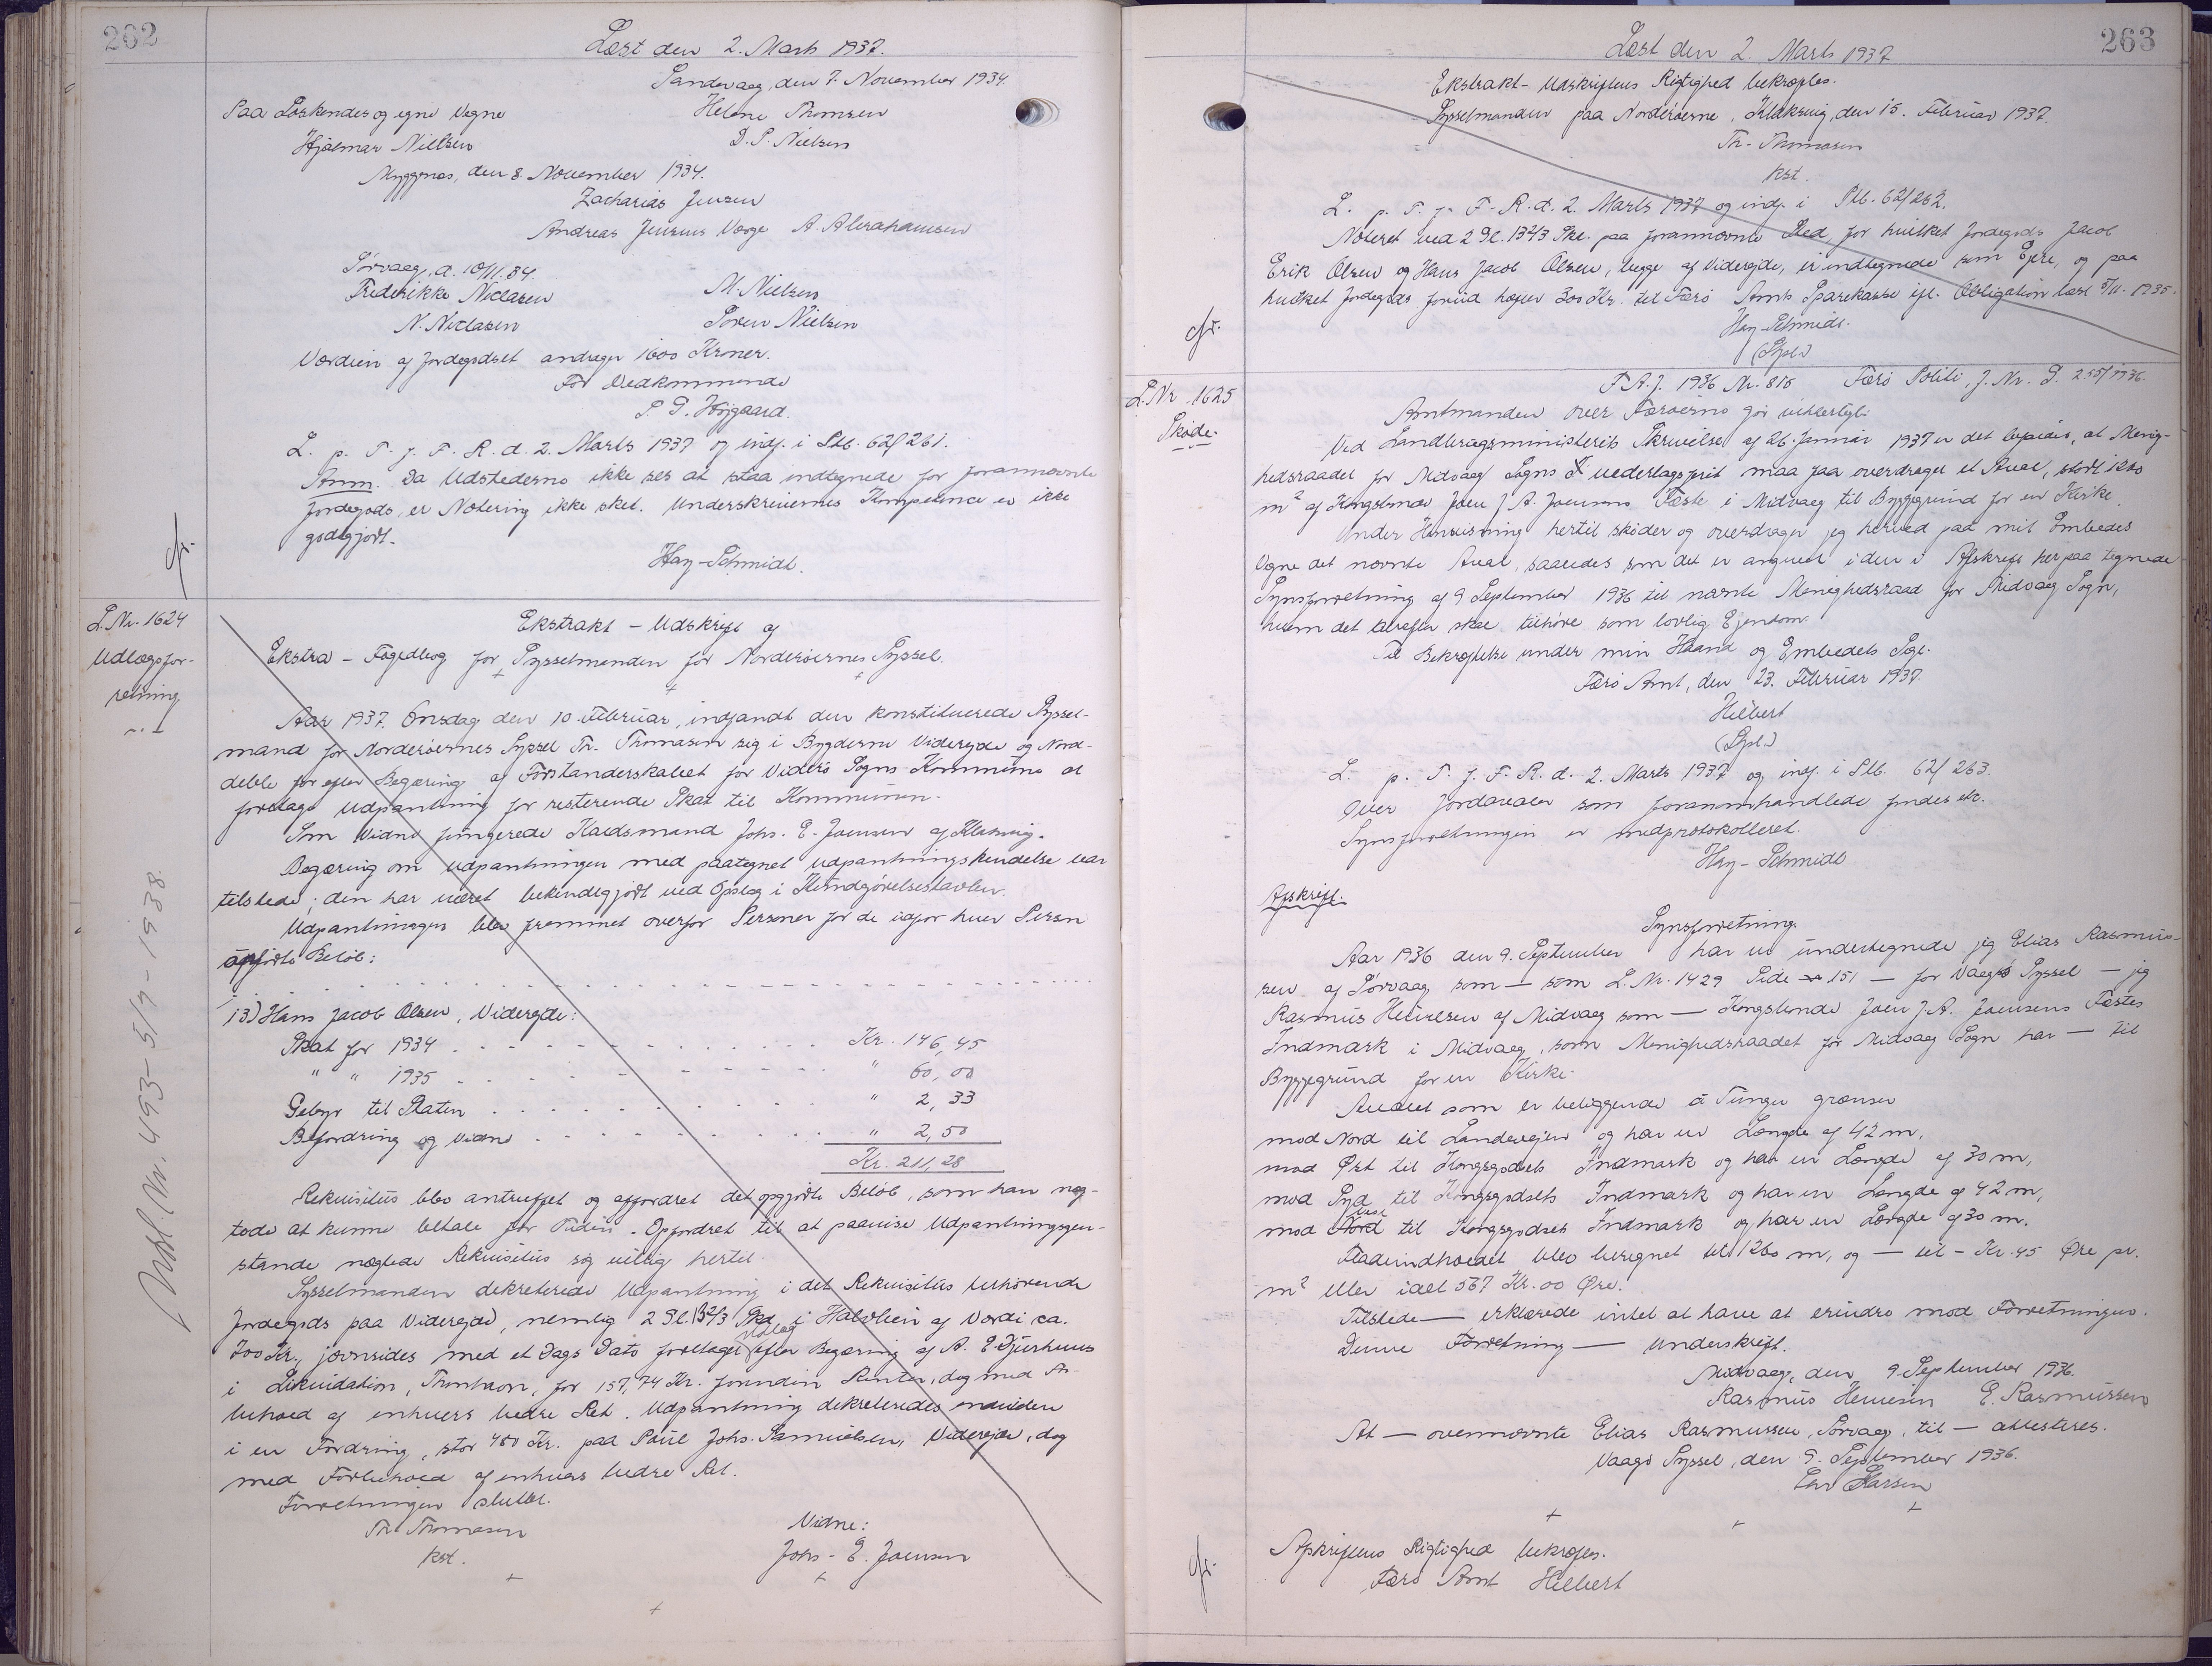 262
Læst den 2. Marts 1937.
Sandevaag, den 7. November 1934
Paa Søskendes og egne Vegne
Helene Thomsen
Hjalmar Nielsen
D. P. Nielsen
Myggenæs, den 8. November 1934.
Zacharias Jensen
Andreas Jensens Værge A. Abrahamsen
Sørvaag, d. 10/11.34.
Frederikke Niclasen
M. Nielsen
N. Niclasen
Søren Nielsen
Værdien af Jordegodset andrager 1600 Kroner.
For Vedkommende
P. D. Højgaard.
L. p. T. f. F. R. d. 2. Marts 1937 og indf. i Ptb. 62/261.
Anm. Da Udstederne ikke ses at staa indtegnede for forannævnte
Jordegods, er Notering ikke sket. Underskrivernes Kompetence er ikke
godtgjort.
Hay-Schmidt.
L. Nr. 1624
Udlægsfor-
retning
Ekstrakt - Udskrift af
Ekstra - Fogedbog for Sysselmanden for Norderøernes Syssel.
Aar 1937 Onsdag den 10. Februar, indfandt den konstituerede Syssel-
mand for Norderøernes Syssel Th. Thomasen sig i Bygderne Viderejde og Nord-
deble for efter Begæring af Forstanderskabet for Viderø Sogns Kommune at
foretage Udpantning for resterende Skat til Kommunen.
Som Vidne fungerede Kaldsmand Johs. E. Joensen af Klaksvig.
Begæring om Udpantningen med paategnet Udpantningskendelse var
tilstede; den har været bekendtgjort ved Opslag i Kundgørelsestavlen.
Udpantningen blev fremmet overfor Personer for de udfor hver Person
opførte Beløb:
13) Hans Jacob Olsen, Viderejde:
Skat for 1934 Kr. 146,45
" " 1935 " 60,00
Gebyr til Staten " 2,33
Befordring og Vidne " 2,50
Kr. 211,28
Rekvisitus blev antruffet og affordret det opgjorte Beløb, som han næg-
tede at kunne betale for Tiden. Opfordret til at paavise Udpantningsgen-
stande nægtede Rekvisitus sig villig hertil.
Sysselmanden dekreterede Udpantning i det Rekvisitus tilhørende
Jordegods paa Viderejde, nemlig 2 Gl. 13 2/3 Skd. i Halvlien af Værdi ca.
700 Kr., jævnsides med et Dags Dato foretaget Udlæg efter Begæring af A. E. Djurhuus
i Likvidation, Thorshavn, for 157,74 Kr. foruden Renter, dog med For-
behold af enhvers bedre Ret. Udpantning dekreteredes endvidere
i en Fordring, stor 480 Kr. paa Poul Johs. Samuelsen, Viderejde, dog
med Forbehold af enhvers bedre Ret.
Forretningen sluttet.
Th. Thomasen
kst.
Vidne:
Johs. E. Joensen
Udsl. Nr. 493 - 5/9 - 1938.
263
Læst den 2. Marts 1937
Ekstrakt-Udskriftens Rigtighed bekræftes.
Sysselmanden paa Norderøerne, Klaksvig, den 15. Februar 1937.
Th. Thomasen
kst.
L. p. T. f. F. R. d. 2. Marts 1937 og indf. i Ptb. 62/262.
Noteret ved 2 Gl. 13 2/3 Skd. paa forannævnte Sted for hvilket Jordegods Jacob
Erik Olsen og Hans Jacob Olsen, begge af Viderejde, er indtegnede som Ejere, og paa
hvilket Jordegods forud hæfter 300 Kr. til Færø Amts Sparekasse ifl. Obligation læst 5/11. 1935.
Hay-Schmidt.
(Sgl.)
L. Nr. 1625
Skøde.
F. A. J. 1936 Nr. 818 Færø Politi, J. Nr. P. 255/1936.
Amtmanden over Færøerne gør vitterligt:
Ved Landbrugsministeriets Skrivelse af 26. Januar 1937 er det bifaldet, at Menig-
hedsraadet for Midvaag Sogns vederlagsfrit maa faa overdraget et Areal, stort 1260
m² af Kongsbonde Joen J. A. Joensens Fæste i Midvaag til Byggegrund for en Kirke.
Under Henvisning hertil skøder og overdrager jeg herved paa mit Embedes
Vegne det nævnte Areal, saaledes som det er angivet i den i Afskrift herpaa tegnede
Synsforretning af 9 September 1936 til nævnte Menighedsraad for Midvaag Sogn,
hvem det derefter skal tilhøre som lovlig Ejendom.
Til Bekræftelse under min Haand og Embedets Segl.
Færø Amt, den 23. Februar 1937.
Hilbert
(Sgl.)
L. p. T. f. F. R. d. 2. Marts 1937 og indf. i Ptb. 62/263.
Over Jordarealer som foranomhandlede findes etc.
Synsforretningen er medprotokolleret.
Hay-Schmidt
Afskrift.
Synsforretning.
Aar 1936 den 9. September har vi undertegnede jeg Elias Rasmus-
sen af Sørvaag som — som L. Nr. 1429 Side 151 — for Vaagø Syssel — jeg
Rasmus Henriksen af Midvaag som — Kongsbonde Joen J. A. Joensens Fæstes
Indmark i Midvaag, som Menighedsraadet for Midvaag Sogn har — til
Byggegrund for en Kirke.
Arealet som er beliggende á Tungu grænser
mod Nord til Landevejen og har en Længde af 42 m,
mod Øst til Kongsgodsets Indmark og har en Længde af 30 m,
mod Syd til Kongsgodsets Indmark og har en Længde af 42 m,
mod Nord Vest til Kongsgodsets Indmark og har en Længde af 30 m.
Fladeindholdet blev beregnet til 1260 m, og — til - Kr. 45 Øre pr.
m² eller ialt 567 Kr. 00 Øre.
Tilstede — erklærede intet at have at erindre mod Forretningen.
Denne Forretning — Underskrift.
Midvaag, den 9. September 1936.
Rasmus Henriksen E. Rasmussen
At — ovennævnte Elias Rasmussen, Sørvaag, til — attesteres.
Vaagø Syssel, den 9. September 1936.
Larsen
Afskriftens Rigtighed bekræftes.
Færø Amt Hilbert